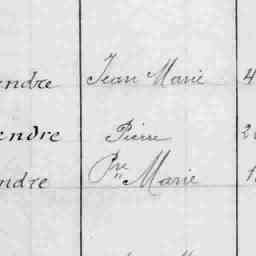 endre Jean Marie 4
endre Pierre 2
ndre Pre Marie 1